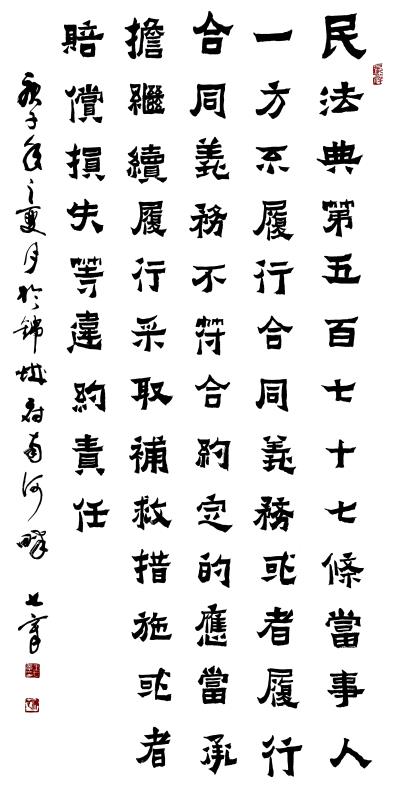 民法典第五百七十七條當事人
一方不履行合同義務或者履行
合同義務不符合約定的應當承
擔繼續履行采取補救措施或者
賠償損失等違約責任
庚子年之夏月於錦城府南河畔